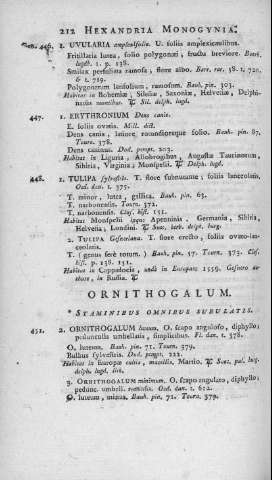 212 HEXANDRIA MONOGYNIA.
1. UVULARIA amplexifolia. U. foliis amplexicaulibus.
Fritillaria lutea, folio polygonati, fructu breviore. Bauh.
1. p. 138.
Smilax perfoliata ramosa, flore albo. Barr. rar. 58. t. 720.
& t. 719.
Polygonatum latifolium, ramosum. Bauh. pin. 303.
Habitat in Bohemiæ, Silesiæ, Saxoniæ, Helvetiæ, Delphi-
montibus. delph. lugd.
447. 1. ERYTHRONIUM Dens canis.
E. foliis ovatis. Mill. dict.
Dens canis, latiore, rotundioreque folio. Bauh. pin. 87.
Tourn. 378.
Dens caninus. Dod. pempt. 203.
Habitat in Liguria, Allobrogibus, Augusta Taurinorum,
Sibiria, Virginia; Monspelii. Delph. lugd.
448. 1. TULIPA sylvestris. T. flore subnutante; foliis lanceolatis.
Oed. dan. t. 375.
T. minor, lutea, gallica. Bauh. pin. 63.
T. narbonensis. Tourn. 372.
T. narbonensis. Clus. hist. 151.
Habitat Monspelii inque Apenninis, Germania, Sibiria,
Helvetia, Londini. delph. lugd.
2. TULIPA Gesneriana. T. flore erecto, foliis ovato-lan-
ceolatis.
T. (genus fere totum.) Bauh. pin. 57. Tourn. 373. Clus.
hist. p. 138. 151.
Habitat in Cappadocia, unde in Europam 1559. Gesnero au-
thore, in Russia.
ORNITHOGALUM.
* STAMINIBUS OMNIBUS SUBULATIS.
451. 2. ORNITHOGALUM luteum. O. scapo anguloso, diphyllo;
pedunculis umbellatis, simplicibus. Fl. dan. t. 378.
O. luteum. Bauh. pin. 71. Tourn. 379.
Bulbus sylvestris. Dod. pempt. 222.
Habitat in Europæ cultis, macellis, Martio.
delph. lugd.
3. ORNITHOGALUM minimum. O. scapo angulato, diphyllo;
pedunc. umbell. ramosis. Oed. dan. t. 612.
O. luteum, minus. Bauh. pin. 71. Tourn. 379.